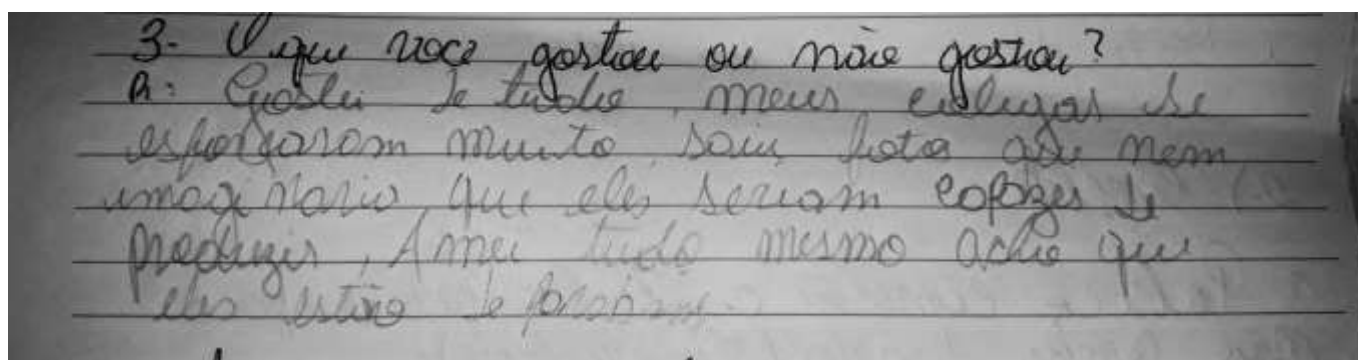 3- O que você gostou ou não gostou?
R: Gostei de tudo, meus colegas se
esforçaram muito, saiu fotos que nem
imaginario, que eles seriam capazes de
produzir, Amei tudo mesmo acho que
eles estão de parabéns.